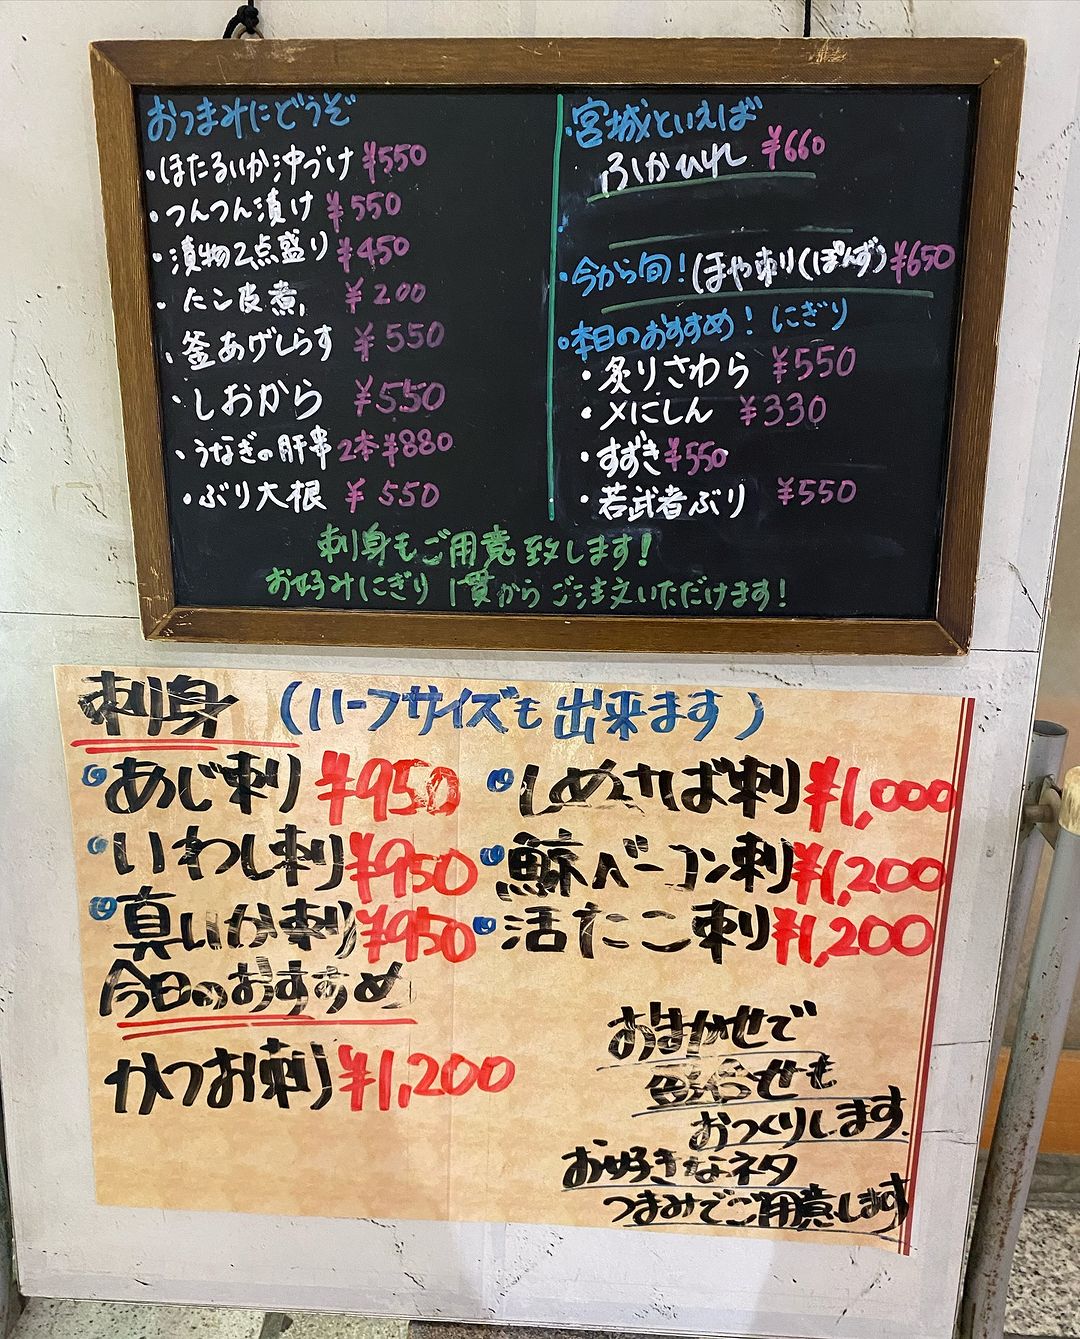 おつまみにどうぞ
・ほたるいか沖づけ ¥550
・つんつん漬け ¥550
・漬物2点盛り ¥450
・たこ皮煮 ¥200
・釜あげしらす ¥550
・しおから ¥550
・うなぎの肝串2本¥880
・ぶり大根 ¥550
・宮城といえば
ふかひれ ¥660
・今から旬!ほや刺り(ぽんず)¥650
・本日のおすすめ! にぎり
・炙りさわら ¥550
・〆にしん ¥330
・すずき¥550
・若武者ぶり ¥550
刺身もご用意致します!
お好みにぎり 1貫からご注文いただけます!
刺身 (ハーフサイズも出来ます)
あじ刺り ¥950
いわし刺り¥950
真いか刺り¥950
しめさば刺り¥1,000
鯨ベーコン刺り¥1,200
活たこ刺り¥1,200
今日のおすすめ
かつお刺り¥1,200
おまかせで
合せも
おつくりします.
お好きなネタ
つまみでご用意します